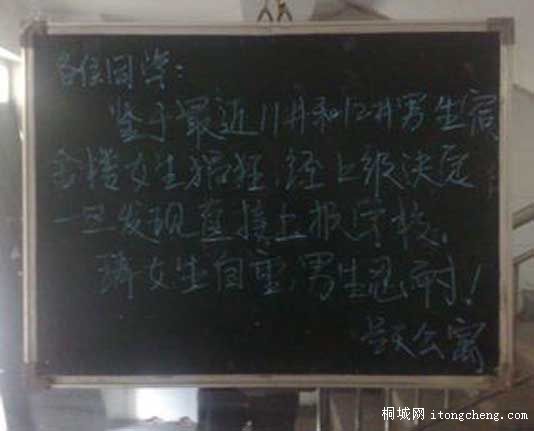 各位同学:
鉴于最近11#和12#男生宿
舍楼女生猖狂,经上级决定
一旦发现直接上报学校。
请女生自重,男生忍耐!
公寓
桐城网 itongcheng.com